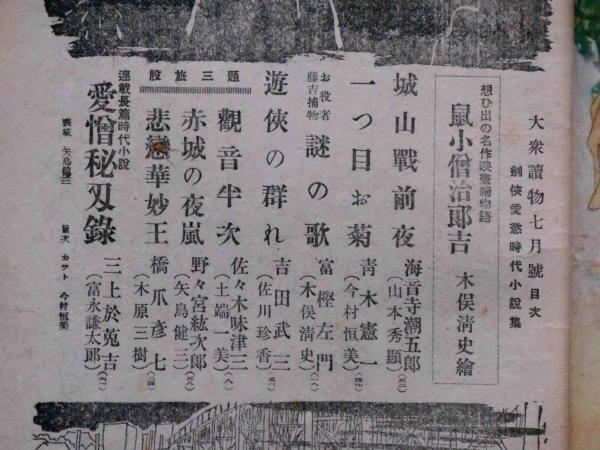 大衆讀物七月號 目次
劍俠愛慾時代小說集
想ひ出の名作映畫繪物語
鼠小僧治郞吉 木俣淸史繪
城山戰前夜 海音寺潮五郎
(山本秀顯)
一つ目お菊 靑木憲一
(今村恒美)
お役者
藤吉捕物
謎の歌 富樫左門
(木俣淸史)
遊俠の群れ 吉田武三
(佐川珍香)
股旅三題
觀音半次 佐々木味津三
(土端一美)
赤城の夜嵐 野々宮紘次郎
(矢島健三)
悲戀華妙王 橋爪彥七
(木原三樹)
連載長篇時代小說
愛憎秘刄錄 三上於菟吉
(富永謙太郎)
表紙 矢島健三 目次 カット 今村恒美